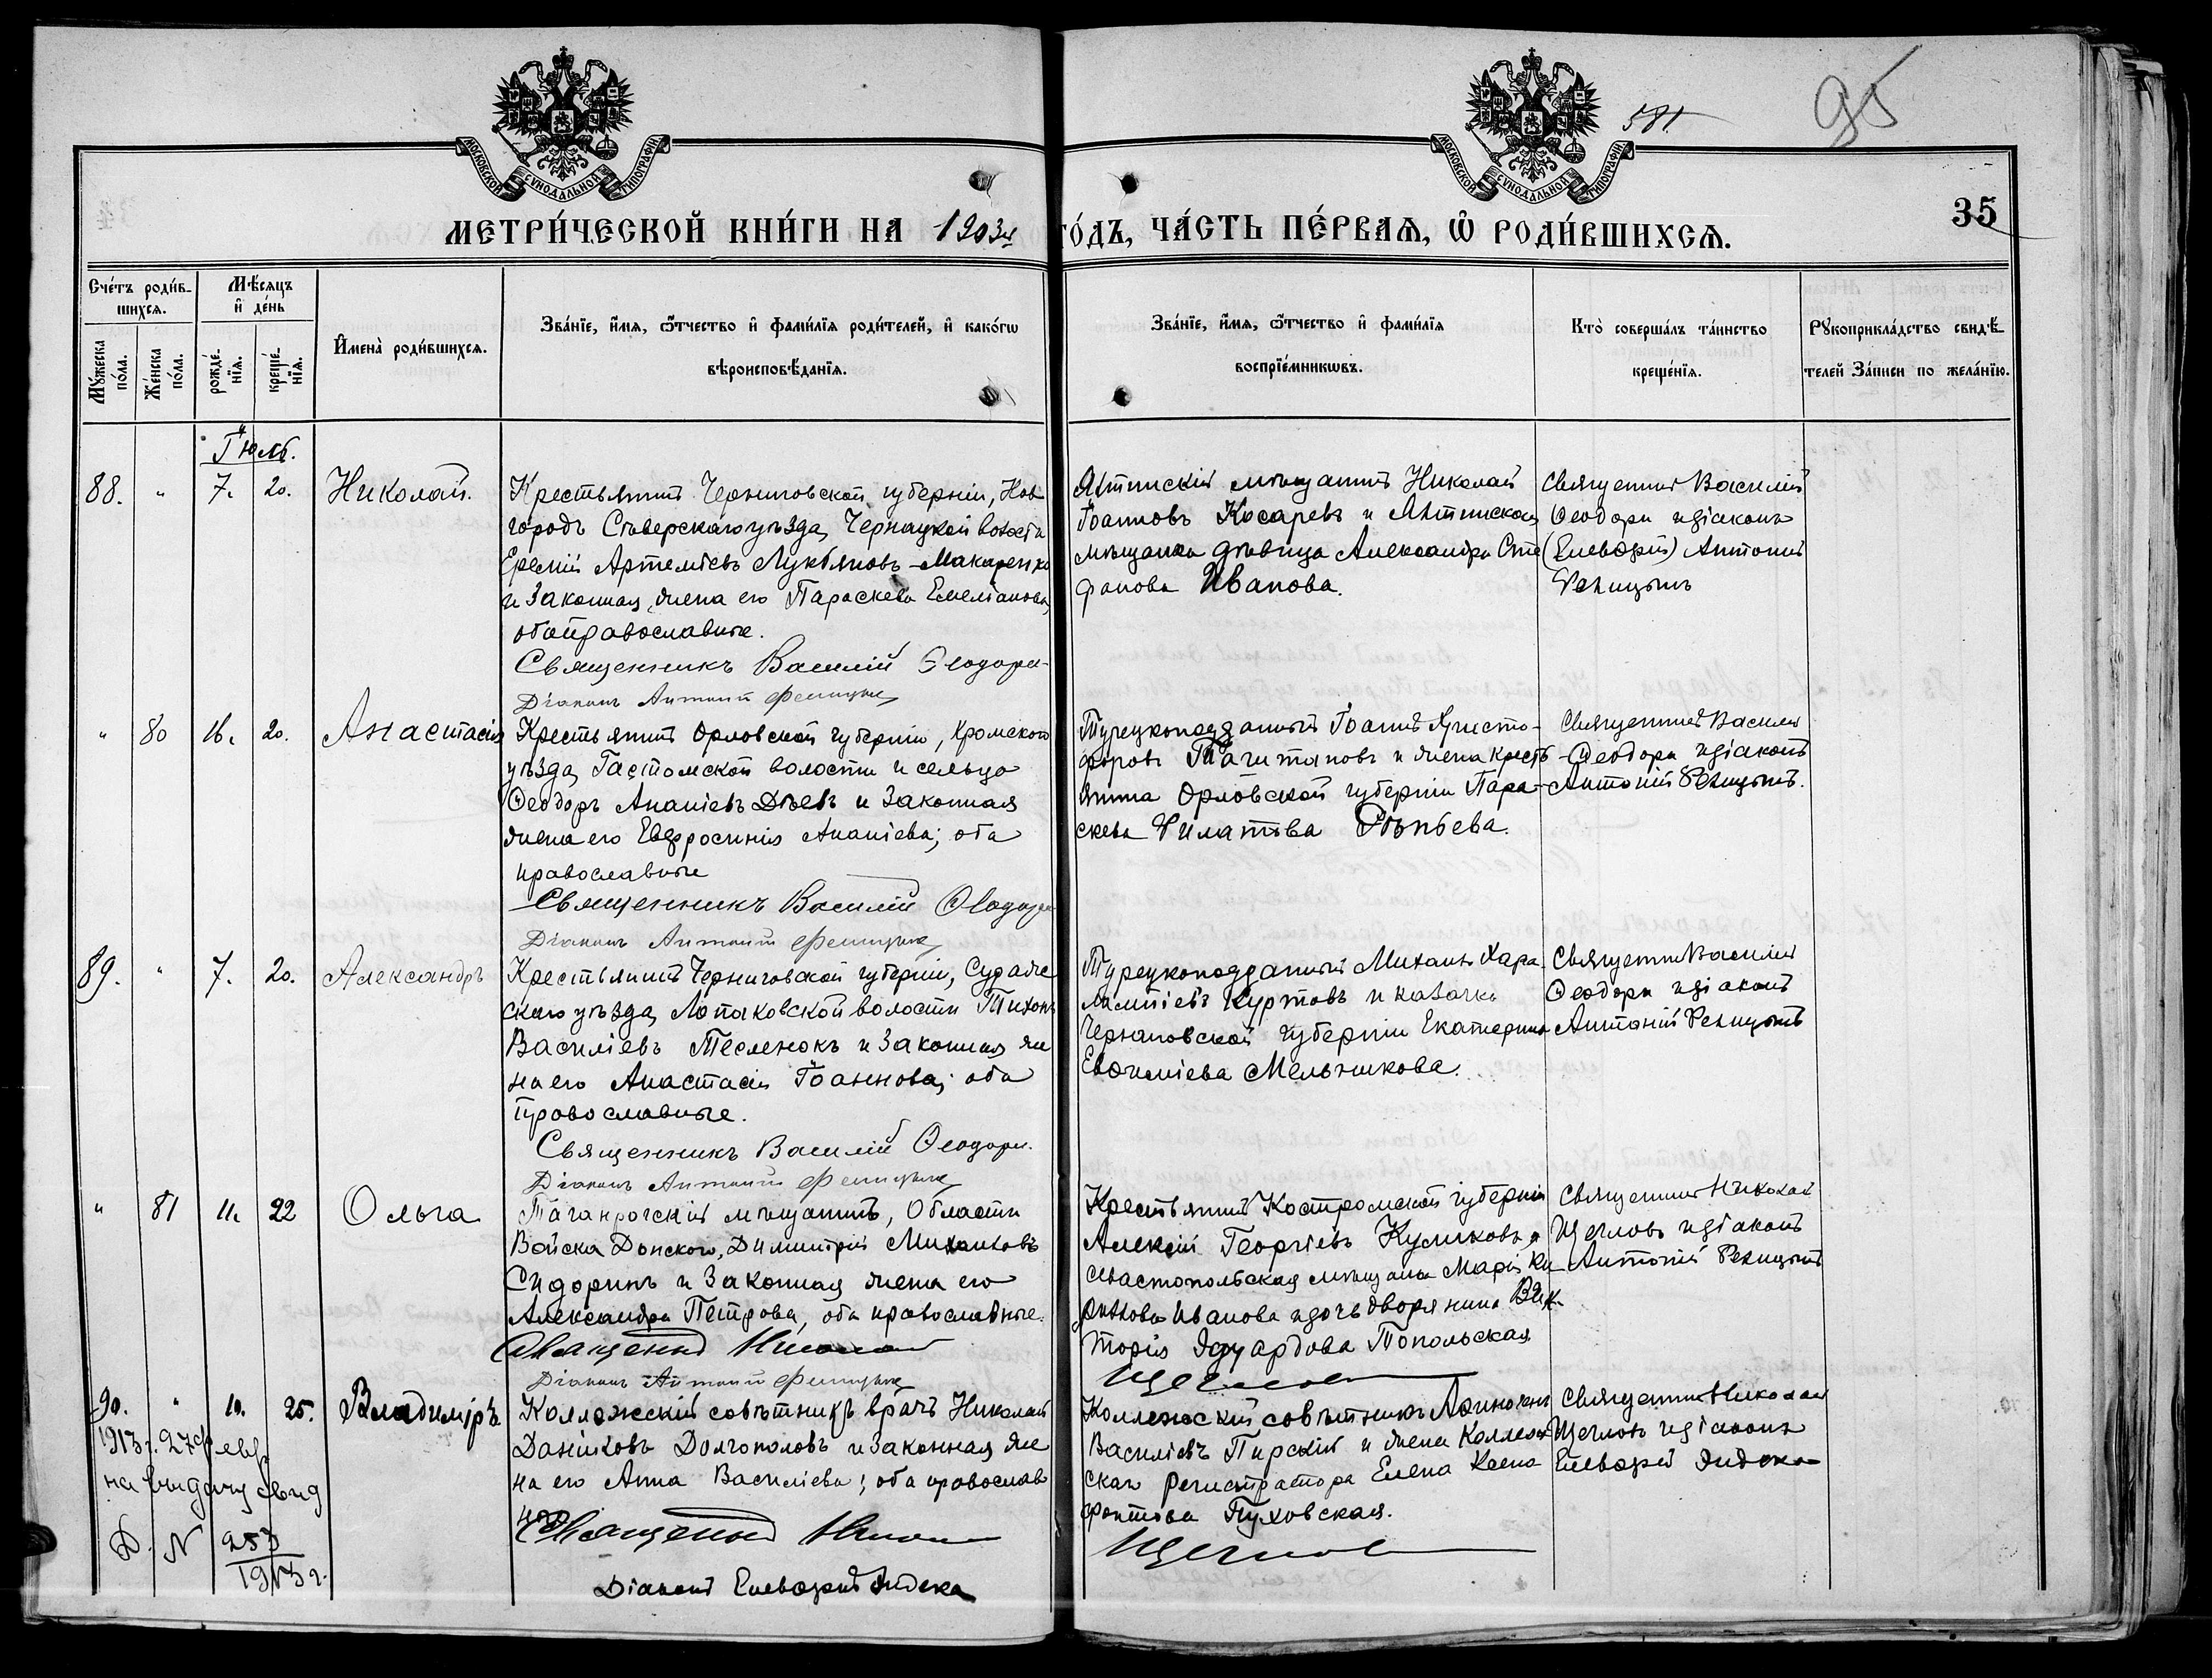 581
95
МОСКОВСКОЙ СѴНОДАЛЬНОЙ ТИПОГРАФІИ
МОСКОВСКОЙ СѴНОДАЛЬНОЙ ТИПОГРАФІИ
35
МЕТРИ́ЧЕСКОЙ КНИ́ГИ НА 1903й ГО́ДЪ, ЧА́СТЬ ПЕ́РВАЯ, Ѡ҆ РОДИ́ВШИХСЯ.
Сче́тъ роди́в-
шихся.
Мѣ́сяцъ
и҆ де́нь
Мꙋ́жеска по́ла.
Же́нска по́ла.
рожде́-
нїя.
креще́-
нїя.
И҆мена̀ роди́вшихся.
Зва́нїе, и҆́мя, ѻ҆́тчество и҆ фами́лїя роди́телей, и҆ како́гѡ
вѣроисповѣ́данїя.
Зва́нїе, и҆́мя, ѻ҆́тчество и҆ фами́лїя
воспрїе́мникѡвъ.
Кто̀ соверша́лъ та́инство
креще́нїя.
Рꙋкоприкла́дство свидѣ́-
телей За́писи по жела́нїю.
Іюль.
88.
"
7.
20.
Николай.
Крестьянинъ Черниговской губерніи, Нов
городъ Сѣверскаго уѣзда, Чернацкой волости
Еремій Артеміевъ Лукьяновъ-Макаренко
и законная жена его Параскева Емеліанова,
оба православные.
Священникъ Василій Ѳеодори
Діаконъ Антоній Феницынъ
Ялтинскій мѣщанинъ Николай
Іоанновъ Косаревъ и Ялтинская
мѣщанка дѣвица Александра Сте
фанова Иванова.
Священникъ Василій
Ѳеодори и діаконъ
(Елевѳерій) Антоній
Феницынъ
"
80
16.
20.
Анастасія
Крестьянинъ Орловской губерніи, Кромского
уѣзда, Гастомской волости и сельца
Ѳеодоръ Ананіевъ Дѣевъ и законная
жена его Евфросинія Ананіева; оба
православные
Священникъ Василій Ѳеодори
Діаконъ Антоній Феницынъ
Турецкоподданный Іоаннъ Христо-
форовъ и жена кресть
янина Орловской губерніи Пара-
скева Филатова Рѣпьева.
Священникъ Василій
Ѳеодори и діаконъ
Антоній Феницынъ.
89.
"
7.
20.
Александръ
Крестьянинъ Черниговской губерніи, Сураж
скаго уѣзда, Лопаковской волости Тихонъ
Василіевъ Тесленокъ и законная же
на его Анастасія Іоаннова; оба
православные.
Священникъ Василій Ѳеодори.
Діаконъ Антоній Феницынъ
Турецкоподданный Михаилъ Хара
лампіевъ Куртовъ и казачка
Черниговской губерніи Екатерина
Евѳиміева Мельникова.
Священникъ Василій
Ѳеодори и діаконъ
Антоній Феницынъ
"
81
11.
22
Ольга
Таганрогскій мѣщанинъ, Области
Войска Донского, Димитрій Михаиловъ
Сидоринъ и законная жена его
Александра Петрова, оба православные.
Священникъ Николай Щегловъ
Діаконъ Антоній Феницынъ
Крестьянинъ Костромской губерніи
Алексій Георгіевъ Куликовъ,
Севастопольская мѣщанка Марія Ки
Иванова и дочь дворянина Вик
торія Эдуардова Топольская
Священникъ Николай
Щегловъ и діаконъ
Антоній Феницынъ
90.
"
10.
25.
Владиміръ
Коллежскій совѣтникъ врачъ Николай
Даніиловъ Долгополовъ и законная же
на его Анна Василіева; оба православ
ные
Священникъ Николай Щегловъ
Діаконъ Елевѳерій Індека
Коллежскій совѣтникъ
Василіевъ Пирскій и жена Коллеж
скаго регистратора Елена Ксено
фонтова Пуховская.
Священникъ Николай
Щегловъ и діаконъ
Елевѳерій Індека
1913 г. 27 февр
на выдачу свид
Д. N 253
1913 г.